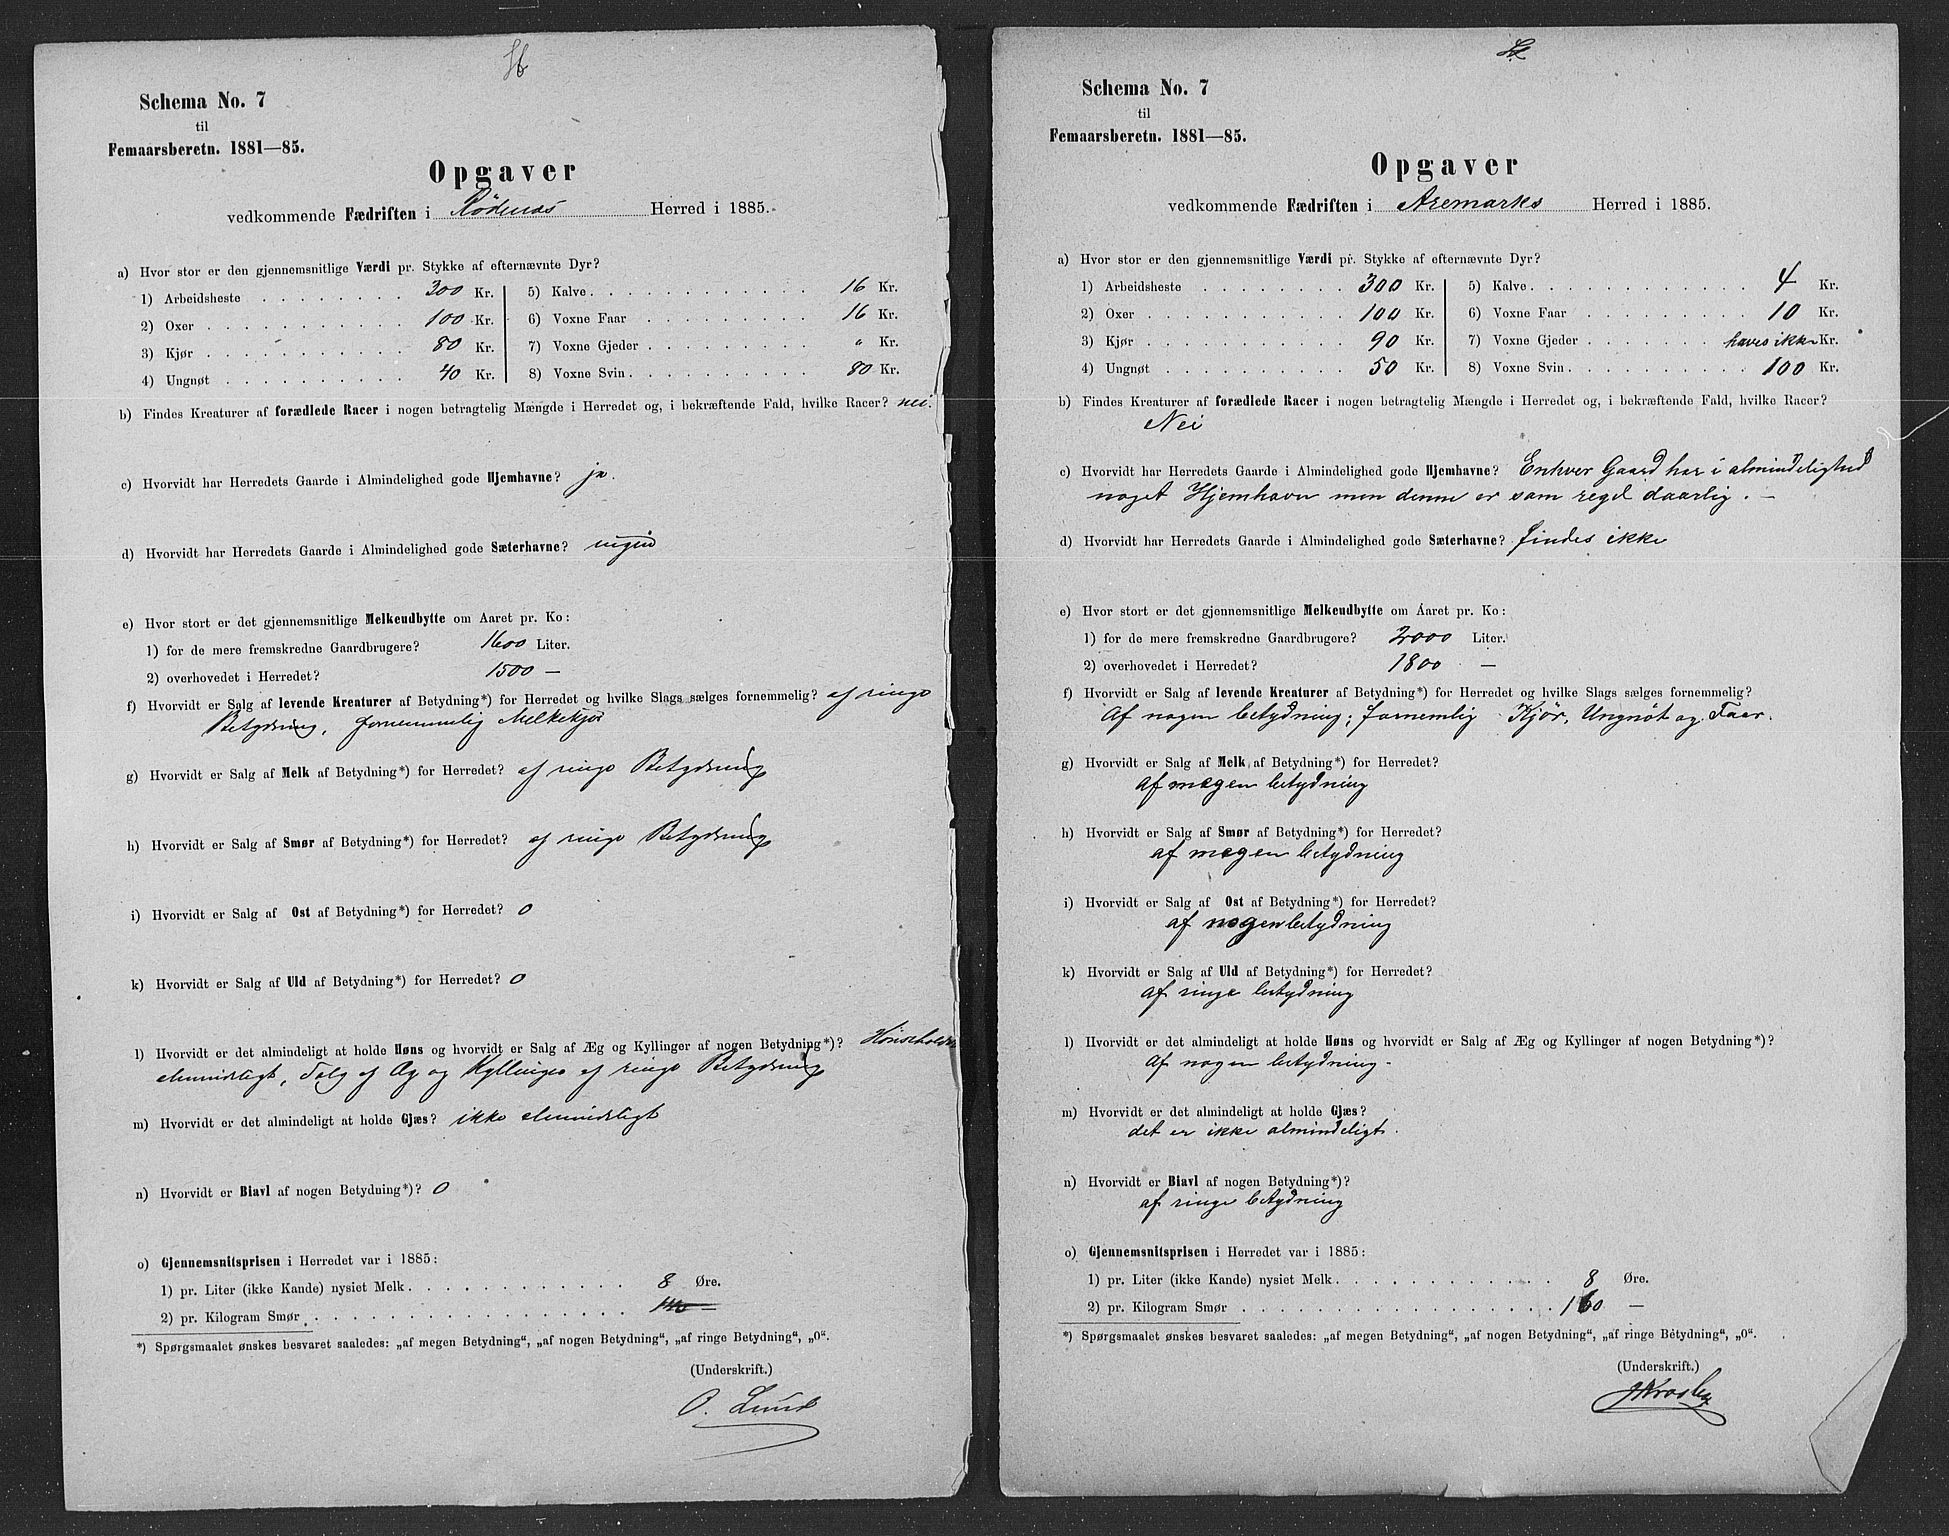 Schema No. 7
til
Femaarsberetn. 1881—85.
Opgaver
vedkommende Fædriften i Rødenæs Herred i 1885.
a) Hvor stor er den gjennemsnitlige Værdi pr. Stykke af efternævnte Dyr?
1) Arbeidsheste 300 Kr. 5) Kalve 16 Kr.
2) Oxer 100 Kr. 6) Voxne Faar 16 Kr.
3) Kjør 80 Kr. 7) Voxne Gjeder " Kr.
4) Ungnøt 40 Kr. 8) Voxne Svin 80 Kr.
b) Findes Kreaturer af forædlede Racer i nogen betragtelig Mængde i Herredet og, i bekræftende Fald, hvilke Racer? nei.
c) Hvorvidt har Herredets Gaarde i Almindelighed gode Hjemhavne? ja.
d) Hvorvidt har Herredets Gaarde i Almindelighed gode Sæterhavne? ingen
e) Hvor stort er det gjennemsnitlige Melkeudbytte om Aaret pr. Ko:
1) for de mere fremskredne Gaardbrugere? 1600 Liter.
2) overhovedet i Herredet? 1500 —
f) Hvorvidt er Salg af levende Kreaturer af Betydning*) for Herredet og hvilke Slags sælges fornemmelig? af ringe
Betydning, fornemmelig Melkekjør
g) Hvorvidt er Salg af Melk af Betydning*) for Herredet? af ringe Betydning
h) Hvorvidt er Salg af Smør af Betydning*) for Herredet? af ringe Betydning
i) Hvorvidt er Salg af Ost af Betydning*) for Herredet? 0
k) Hvorvidt er Salg af Uld af Betydning*) for Herredet? 0
l) Hvorvidt er det almindeligt at holde Høns og hvorvidt er Salg af Æg og Kyllinger af nogen Betydning*)?
almindeligt, Salg af Æg og Kyllinger af ringe Betydning
m) Hvorvidt er det almindeligt at holde Gjæs? ikke almindeligt
n) Hvorvidt er Biavl af nogen Betydning*)? 0
o) Gjennemsnitsprisen i Herredet var i 1885:
1) pr. Liter (ikke Kande) nysiet Melk 8 Øre.
2) pr. Kilogram Smør —
*) Spørgsmaalet ønskes besvaret saaledes: „af megen Betydning“, „af nogen Betydning“, „af ringe Betydning“, „0“.
(Underskrift.)
O. Lund
Schema No. 7
til
Femaarsberetn. 1881—85.
Opgaver
vedkommende Fædriften i Aremarks Herred i 1885.
a) Hvor stor er den gjennemsnitlige Værdi pr. Stykke af efternævnte Dyr?
1) Arbeidsheste 300 Kr. 5) Kalve 4 Kr.
2) Oxer 100 Kr. 6) Voxne Faar 10 Kr.
3) Kjør 90 Kr. 7) Voxne Gjeder haves ikke Kr.
4) Ungnøt 50 Kr. 8) Voxne Svin 100 Kr.
b) Findes Kreaturer af forædlede Racer i nogen betragtelig Mængde i Herredet og, i bekræftende Fald, hvilke Racer?
Nei
c) Hvorvidt har Herredets Gaarde i Almindelighed gode Hjemhavne? Enhver Gaard har i almindelighed
noget Hjemhavn men denne er som regel daarlig. —
d) Hvorvidt har Herredets Gaarde i Almindelighed gode Sæterhavne? findes ikke
e) Hvor stort er det gjennemsnitlige Melkeudbytte om Aaret pr. Ko:
1) for de mere fremskredne Gaardbrugere? 2000 Liter.
2) overhovedet i Herredet? 1800 —
f) Hvorvidt er Salg af levende Kreaturer af Betydning*) for Herredet og hvilke Slags sælges fornemmelig?
Af nogen betydning; fornemlig Kjør, Ungnøt og Faar.
g) Hvorvidt er Salg af Melk af Betydning*) for Herredet?
af megen betydning
h) Hvorvidt er Salg af Smør af Betydning*) for Herredet?
af megen betydning
i) Hvorvidt er Salg af Ost af Betydning*) for Herredet?
af nogen betydning
k) Hvorvidt er Salg af Uld af Betydning*) for Herredet?
af ringe betydning
l) Hvorvidt er det almindeligt at holde Høns og hvorvidt er Salg af Æg og Kyllinger af nogen Betydning*)?
af nogen betydning.
m) Hvorvidt er det almindeligt at holde Gjæs?
det er ikke almindeligt.
n) Hvorvidt er Biavl af nogen Betydning*)?
af ringe betydning
o) Gjennemsnitsprisen i Herredet var i 1885:
1) pr. Liter (ikke Kande) nysiet Melk 8 Øre.
2) pr. Kilogram Smør 160 —
*) Spørgsmaalet ønskes besvaret saaledes: „af megen Betydning“, „af nogen Betydning“, „af ringe Betydning“, „0“.
(Underskrift.)